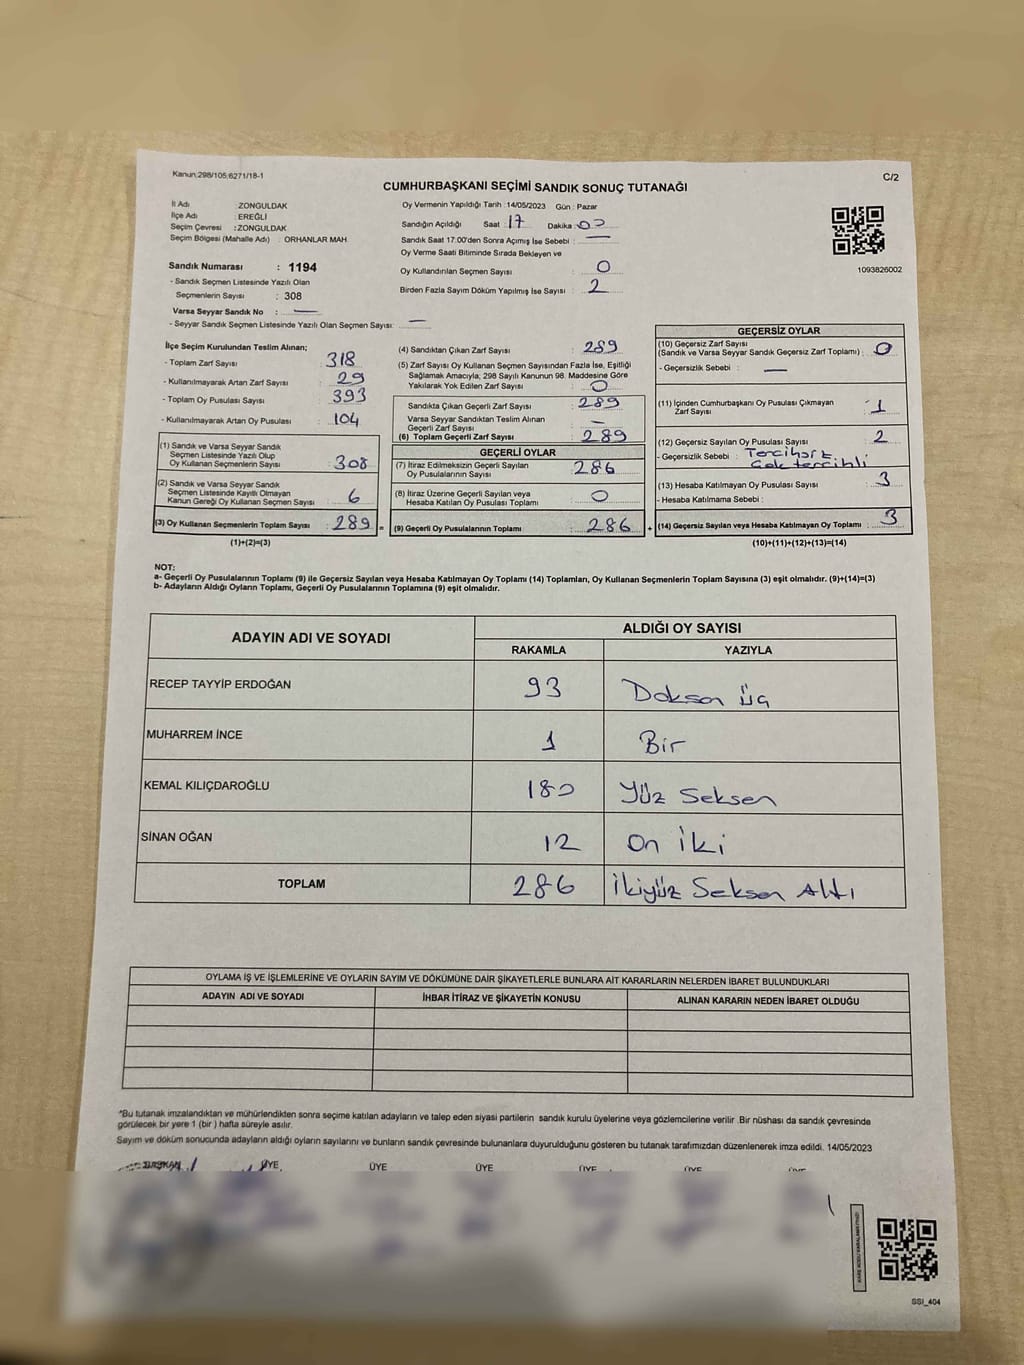 Kanun:298/105;6271/18-1
C/2
CUMHURBAŞKANI SEÇİMİ SANDIK SONUÇ TUTANAĞI
İl Adı : ZONGULDAK
İlçe Adı : EREĞLİ
Seçim Çevresi : ZONGULDAK
Seçim Bölgesi (Mahalle Adı) : ORHANLAR MAH.
Sandık Numarası : 1194
- Sandık Seçmen Listesinde Yazılı Olan
Seçmenlerin Sayısı : 308
Varsa Seyyar Sandık No : —
- Seyyar Sandık Seçmen Listesinde Yazılı Olan Seçmen Sayısı: —
Oy Vermenin Yapıldığı Tarih : 14/05/2023 Gün : Pazar
Sandığın Açıldığı Saat : 17 Dakika : 00
Sandık Saat 17:00'den Sonra Açımış İse Sebebi : —
Oy Verme Saati Bitiminde Sırada Bekleyen ve
Oy Kullandırılan Seçmen Sayısı : 0
Birden Fazla Sayım Döküm Yapılmış İse Sayısı : 2
1093826002
İlçe Seçim Kurulundan Teslim Alınan;
- Toplam Zarf Sayısı : 318
- Kullanılmayarak Artan Zarf Sayısı : 29
- Toplam Oy Pusulası Sayısı : 393
- Kullanılmayarak Artan Oy Pusulası : 104
(1) Sandık ve Varsa Seyyar Sandık
Seçmen Listesinde Yazılı Olup
Oy Kullanan Seçmenlerin Sayısı : 308
(2) Sandık ve Varsa Seyyar Sandık
Seçmen Listesinde Kayıtlı Olmayan
Kanun Gereği Oy Kullanan Seçmen Sayısı : 6
(3) Oy Kullanan Seçmenlerin Toplam Sayısı : 289 =
(1)+(2)=(3)
(4) Sandıktan Çıkan Zarf Sayısı : 289
(5) Zarf Sayısı Oy Kullanan Seçmen Sayısından Fazla İse, Eşitliği
Sağlamak Amacıyla, 298 Sayılı Kanunun 98. Maddesine Göre
Yakılarak Yok Edilen Zarf Sayısı : 0
Sandıkta Çıkan Geçerli Zarf Sayısı : 289
Varsa Seyyar Sandıktan Teslim Alınan
Geçerli Zarf Sayısı : —
(6) Toplam Geçerli Zarf Sayısı : 289
GEÇERLİ OYLAR
(7) İtiraz Edilmeksizin Geçerli Sayılan
Oy Pusulalarının Sayısı : 286
(8) İtiraz Üzerine Geçerli Sayılan veya
Hesaba Katılan Oy Pusulası Toplamı : 0
(9) Geçerli Oy Pusulalarının Toplamı : 286 +
GEÇERSİZ OYLAR
(10) Geçersiz Zarf Sayısı
(Sandık ve Varsa Seyyar Sandık Geçersiz Zarf Toplamı) : 0
- Geçersizlik Sebebi : —
(11) İçinden Cumhurbaşkanı Oy Pusulası Çıkmayan
Zarf Sayısı : 1
(12) Geçersiz Sayılan Oy Pusulası Sayısı : 2
- Geçersizlik Sebebi :
Çok tercihli
(13) Hesaba Katılmayan Oy Pusulası Sayısı : 3
- Hesaba Katılmama Sebebi :
(14) Geçersiz Sayılan veya Hesaba Katılmayan Oy Toplamı : 3
(10)+(11)+(12)+(13)=(14)
NOT:
a- Geçerli Oy Pusulalarının Toplamı (9) ile Geçersiz Sayılan veya Hesaba Katılmayan Oy Toplamı (14) Toplamları, Oy Kullanan Seçmenlerin Toplam Sayısına (3) eşit olmalıdır. (9)+(14)=(3)
b- Adayların Aldığı Oyların Toplamı, Geçerli Oy Pusulalarının Toplamına (9) eşit olmalıdır.
ADAYIN ADI VE SOYADI
ALDIĞI OY SAYISI
RAKAMLA YAZIYLA
RECEP TAYYİP ERDOĞAN 93 Doksan üç
MUHARREM İNCE 1 Bir
KEMAL KILIÇDAROĞLU 180 Yüz Seksen
SİNAN OĞAN 12 On iki
TOPLAM 286 İkiyüz Seksen Altı
OYLAMA İŞ VE İŞLEMLERİNE VE OYLARIN SAYIM VE DÖKÜMÜNE DAİR ŞİKAYETLERLE BUNLARA AİT KARARLARIN NELERDEN İBARET BULUNDUKLARI
ADAYIN ADI VE SOYADI İHBAR İTİRAZ VE ŞİKAYETİN KONUSU ALINAN KARARIN NEDEN İBARET OLDUĞU
*Bu tutanak imzalandıktan ve mühürlendikten sonra seçime katılan adayların ve talep eden siyasi partilerin sandık kurulu üyelerine veya gözlemcilerine verilir. Bir nüshası da sandık çevresinde
görülecek bir yere 1 (bir ) hafta süreyle asılır.
Sayım ve döküm sonucunda adayların aldığı oyların sayılarını ve bunların sandık çevresinde bulunanlara duyurulduğunu gösteren bu tutanak tarafımızdan düzenlenerek imza edildi. 14/05/2023
BAŞKAN ÜYE ÜYE ÜYE ÜYE ÜYE ÜYE
SSI_404